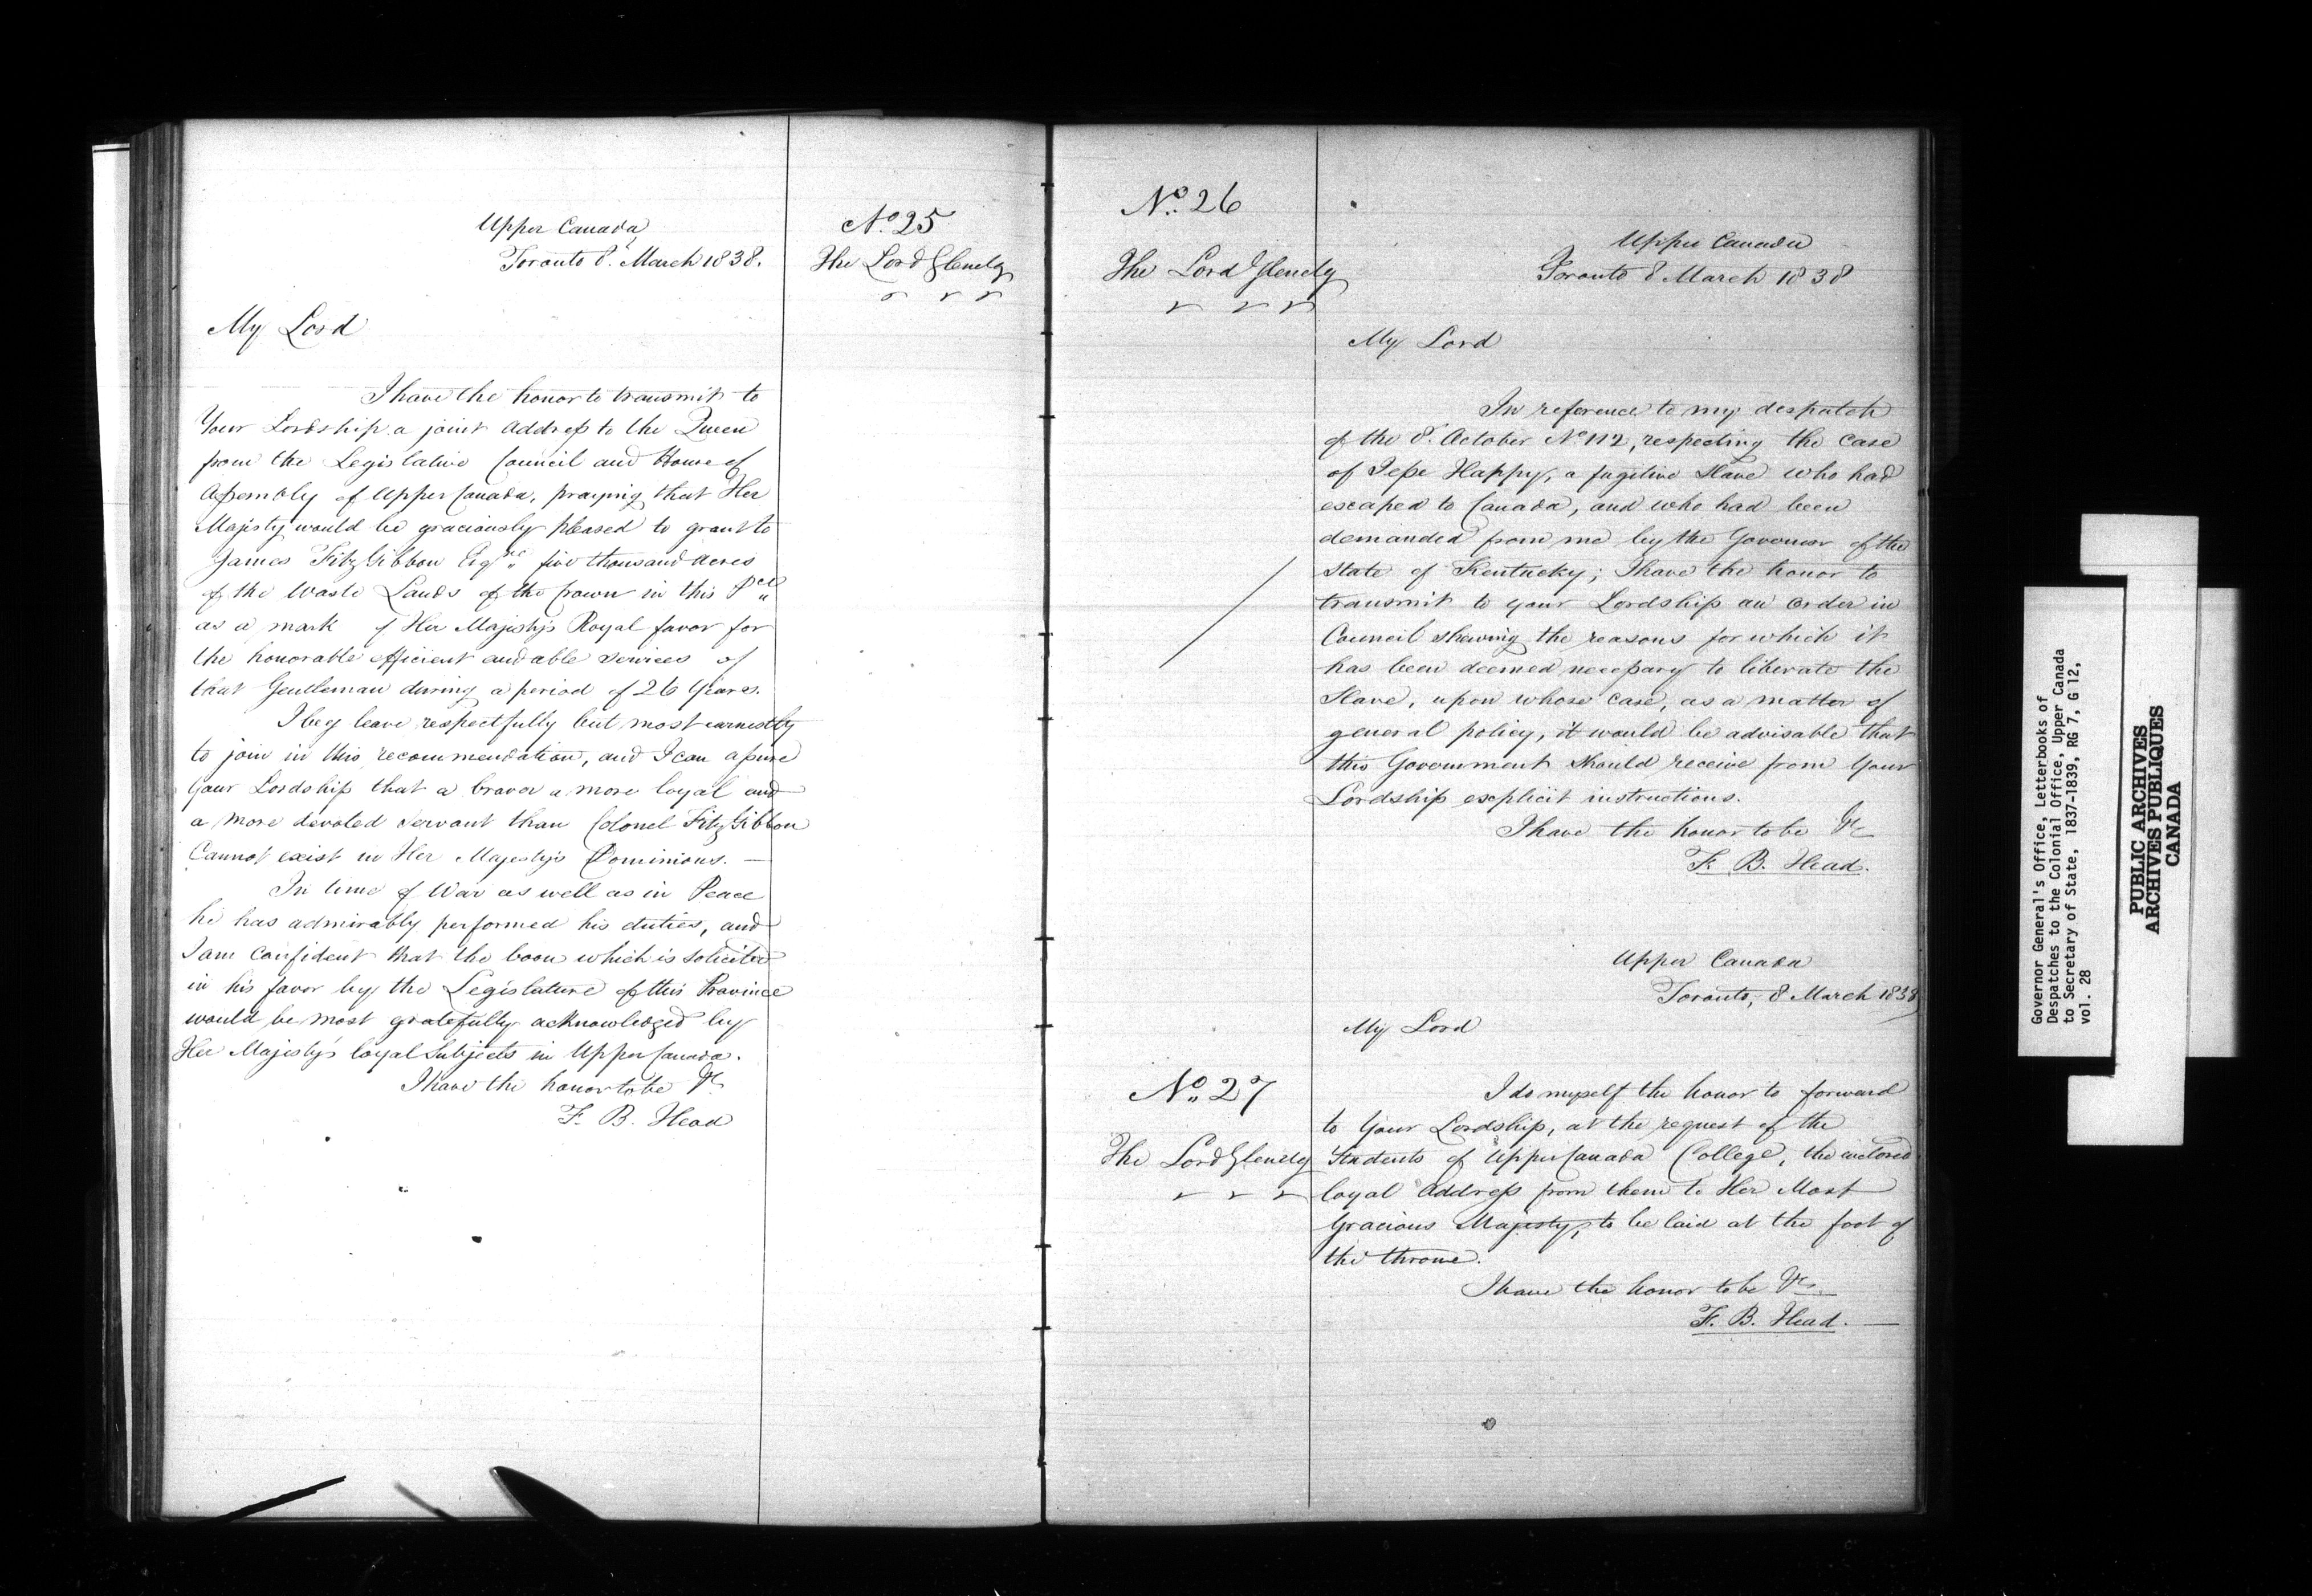 Upper Canada
Toronto 8. March 1838.
No. 25
The Lord Glenelg
My Lord
I have the honor to transmit to
Your Lordship a joint Address to the Queen
from the Legislative Council and House of
Assembly of Upper Canada, praying that Her
Majesty would be graciously pleased to grant to
James FitzGibbon Esqre five thousand acres
of the Waste Lands of the Crown in this Pce
as a mark of Her Majesty's Royal favor for
the honorable efficient and able services of
that Gentleman during a period of 26 Years.
I beg leave respectfully but most earnestly
to join in this recommendation, and I can assure
Your Lordship that a braver a more loyal and
a more devoted servant than Colonel FitzGibbon
Cannot exist in Her Majesty's Dominions. —
In time of War as well as in Peace
he has admirably performed his duties, and
I am confident that the boon which is solicited
in his favor by the Legislature of this Province
would be most gratefully acknowledged by
Her Majesty's loyal Subjects in Upper Canada.
I have the honor to be &c
F. B. Head
No. 26
The Lord Glenelg
Upper Canada
Toronto 8 March 1838
My Lord
In reference to my despatch
of the 8. October No. 112, respecting the case
of Jesse Happy, a fugitive Slave who had
escaped to Canada, and who had been
demanded from me by the Governor of the
State of Kentucky; I have the honor to
transmit to your Lordship an order in
Council shewing the reasons for which it
has been deemed necessary to liberate the
Slave, upon whose case, as a matter of
general policy, it would be advisable that
this Government should receive from Your
Lordship explicit instructions.
I have the honor to be &c
F. B. Head.
Upper Canada
Toronto, 8 March 1838
My Lord
No. 27
The Lord Glenelg
I do myself the honor to forward
to Your Lordship, at the request of the
Students of Upper Canada College, the inclosed
loyal Address from them to Her Most
Gracious Majesty, to be laid at the foot of
the throne.
I have the honor to be &c
F. B. Head. —
Governor General's Office, Letterbooks of
Despatches to the Colonial Office, Upper Canada
to Secretary of State, 1837-1839, RG 7, G 12,
vol. 28
PUBLIC ARCHIVES
ARCHIVES PUBLIQUES
CANADA